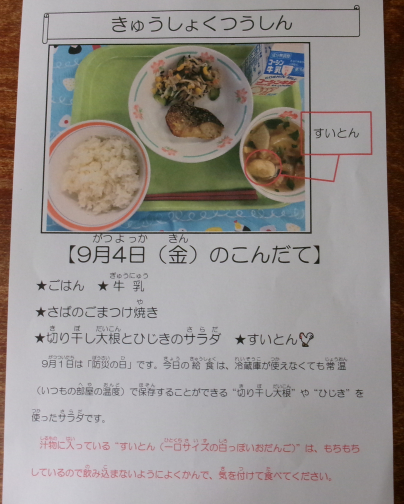 きゅうしょくつうしん
コーシン
牛乳
すいとん
【9月4日（金）のこんだて】
がつよっか きん
★ごはん ★牛乳
ぎゅうにゅう
★さばのごまつけ焼き
や
★切り干し大根とひじきのサラダ ★すいとん
き ぼ だいこん さらだ
9月1日は「防災の日」です。今日の給食は、冷蔵庫が使えなくても常温
（いつもの部屋の温度）で保存することができる“切り干し大根”や“ひじき”を
使ったサラダです。
汁物に入っている“すいとん（一口サイズの白っぽいおだんご）”は、もちもち
しているので飲み込まないようによくかんで、気を付けて食べてください。